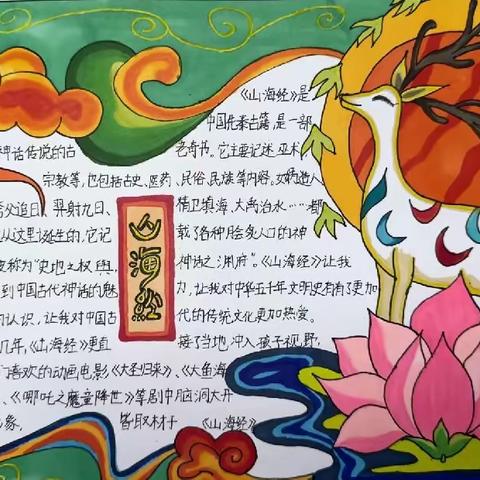 《山海经》是
中国先秦古籍,是一部
神话传说的古老奇书。它主要记述巫术
宗教等,也包括古史、医药、民俗、民族等内容。女娲造人
父追日、羿射九日、精卫填海、大禹治水……都
从这里诞生的,它记载了各种脍炙人口的神
被称为“史地之权舆,神话之渊府”。《山海经》让我
到中国古代神话的魅力,让我对中华五千年文明史有了更加
的认识,让我对中国古代的传统文化更加热爱。
几年,《山海经》更直接了当地,冲入孩子视野,
门喜欢的动画电影《大圣归来》、《大鱼海
、《哪吒之魔童降世》等剧中脑洞大开
象,皆取材于《山海经》
山海经